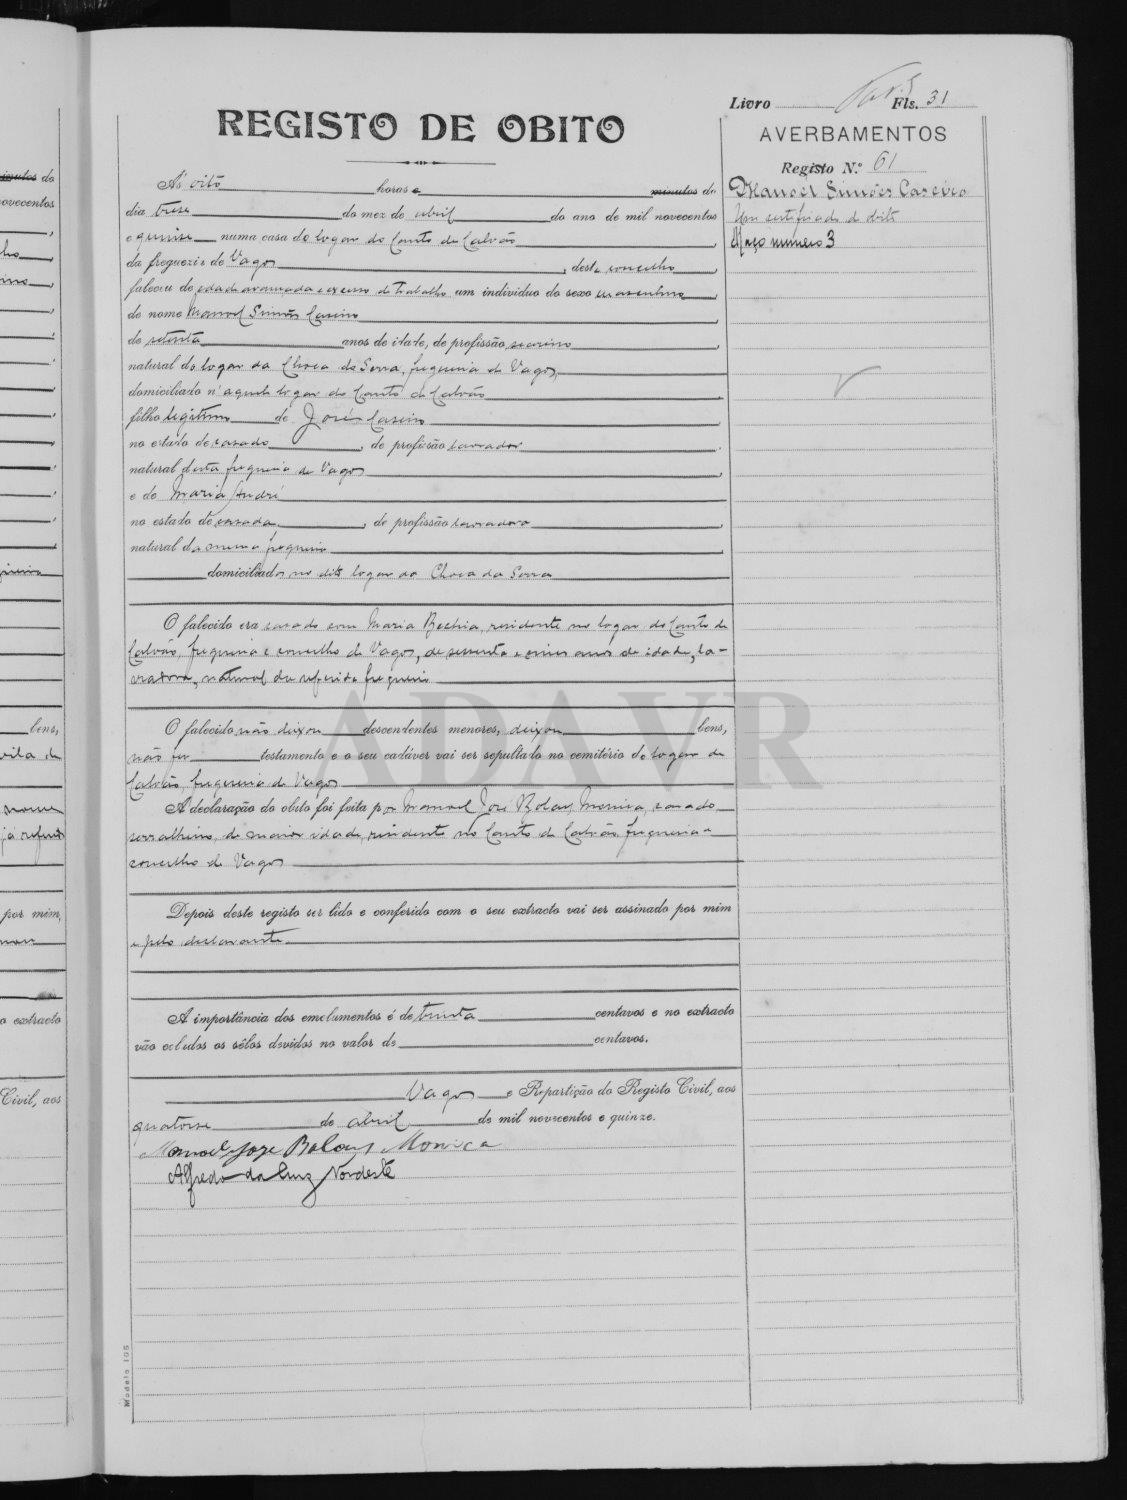 Livro Fls. 31
REGISTO DE OBITO
AVERBAMENTOS
Registo N.º 61
Manoel Simões Caseiro
Um certificado d obito
Maço numero 3
Ás oito horas e minutos do
dia treze do mez de abril do ano de mil novecentos
e quinze numa casa do logar do Canto de Calvão,
da freguezia de Vagos, deste concelho,
faleceu de edade avançada e excesso de trabalho um individuo do sexo masculino,
de nome Manoel Simões Caseiro,
de setenta anos de idade, de profissão,
natural do logar da Choca da Serra, freguesia de Vagos,
domiciliado n'aquele logar do Canto de Calvão,
filho legitimo de José Caseiro,
no estado de casado, de profissão lavrador,
natural desta freguesia de Vagos,
e de Maria André
no estado de casada, de profissão lavradora,
natural da mesma freguesia,
domiciliados no dito logar da Choca da Serra
O falecido era casado com Maria residente no logar do Canto de
Calvão, freguesia e concelho de Vagos, de sessenta e cinco anos de idade, la-
vradora, natural da referida freguesia
O falecido não deixou descendentes menores, deixou bens,
não fez testamento e o seu cadáver vai ser sepultado no cemitério do logar de
Calvão, freguesia de Vagos
A declaração do obito foi feita por Manoel José Bolais Monica, casado
serralheiro, de maior idade, residente no Canto de Calvão, freguesia e
concelho de Vagos
Depois deste registo ser lido e conferido com o seu extracto vai ser assinado por mim
e pelo declarante
A importância dos emolumentos é de trinta centavos e no extracto
vão colados os sêlos devidos no valor de centavos.
Vagos e Repartição do Registo Civil, aos
quatorse de abril de mil novecentos e quinze.
Manoel Joze Bolais Monica
Alfredo da Cruz Nordeste
Modelo 105
ADAVR